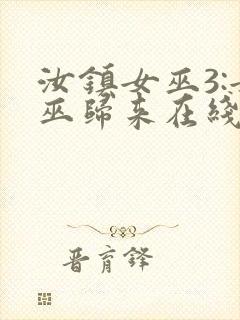 汝鎮女巫3:女
巫歸來在綫
晋育鋒